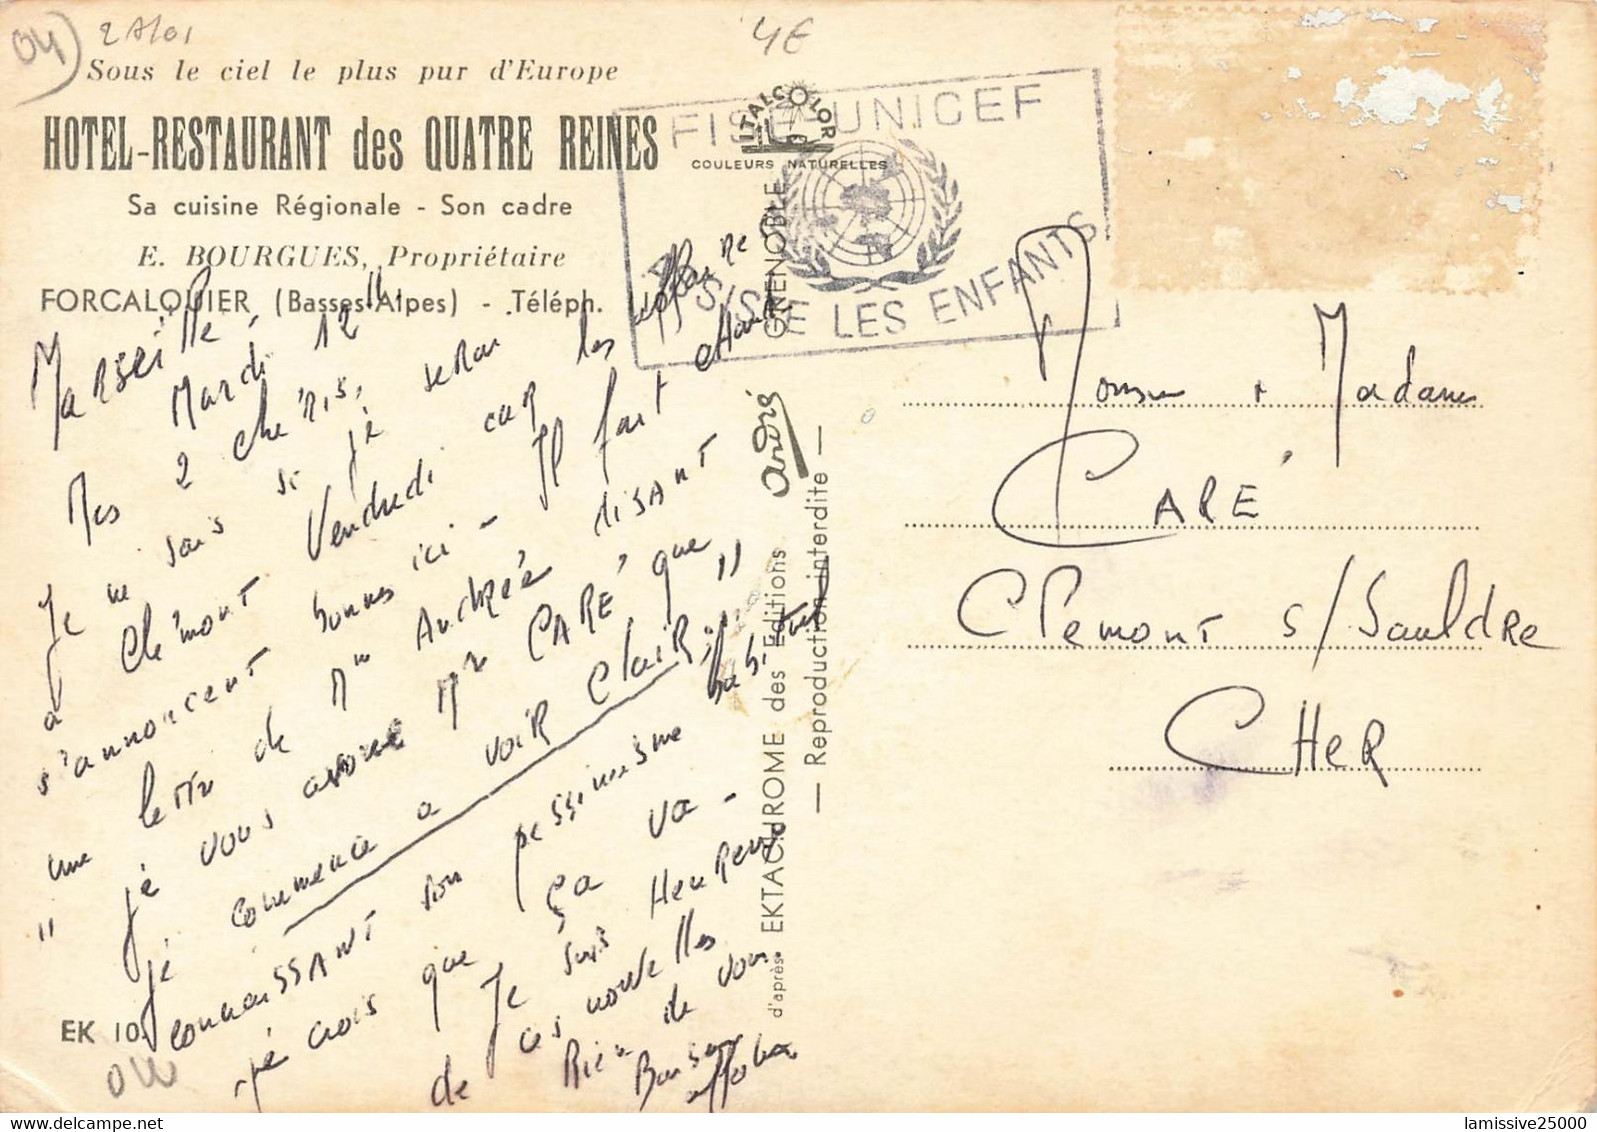 04
4€
Sous le ciel le plus pur d'Europe
HOTEL-RESTAURANT des QUATRE REINES
Sa cuisine Régionale - Son cadre
E. BOURGUES, Propriétaire
FORCALQUIER (Basses-Alpes) - Téléph.
ITALCOLOR
COULEURS NATURELLES
FISE-UNICEF
ASSISTE LES ENFANTS
Marseille,
Mardi 12
Mes 2 chéris,
Je ne sais si je serai
à Clémont Vendredi car les affaires
s'annoncent bonnes ici - Il fait chaud
une lettre de Mme Andrée disant
" je vous avoue Mr CARÉ que
je commence a voir clair "
connaissant son pessimisme habituel
je crois que ça va -
Je suis Heureux
de ces nouvelles
Rien de vous
Bons
EK 10
d'après EKTACHROME des Editions andris GRENOBLE
— Reproduction interdite —
Monsieur + Madame
CARÉ
Clemont s/Sauldre
CHER
lamissive25000